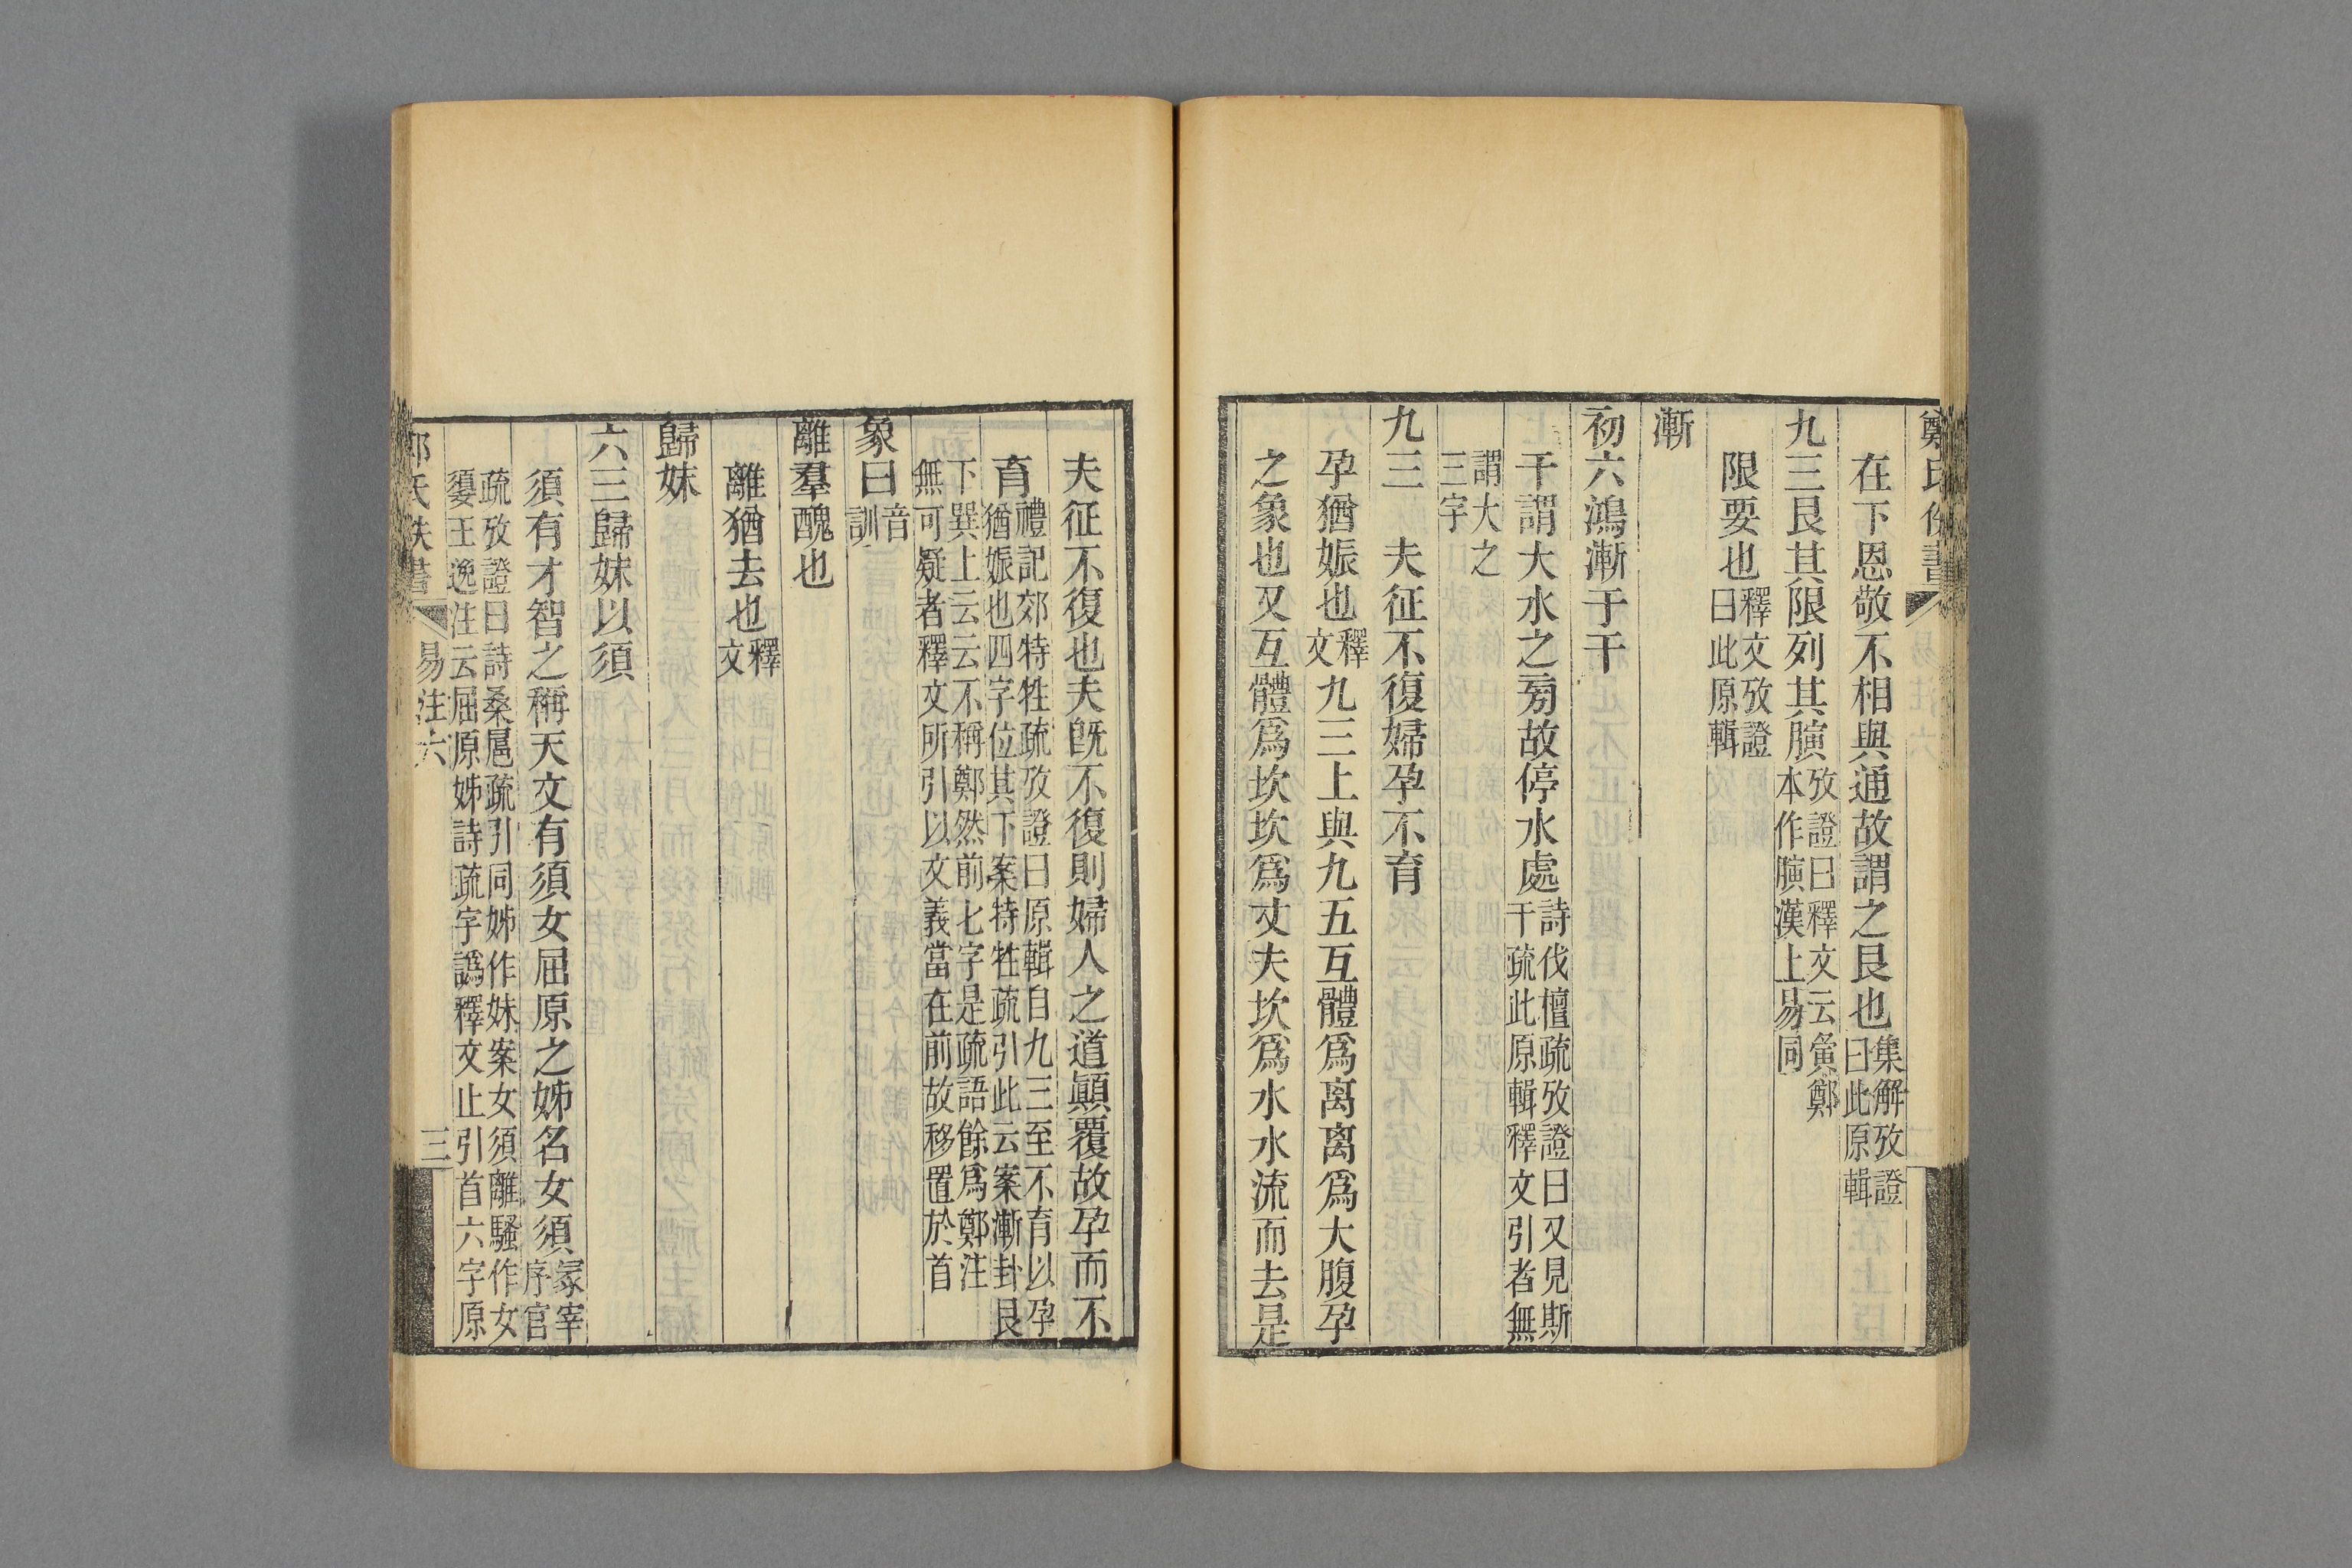 在下恩敬不相與通故謂之艮也集解攷證曰此原輯
九三艮其限列其䐠攷證曰釋文云夤鄭本作䐠漢上易同
限要也釋文攷證曰此原輯
漸
初六鴻漸于干
干謂大水之㫄故停水處詩伐檀疏攷證曰又見斯干疏此原輯釋文引者無
謂大之三字
九三　夫征不復婦孕不育
孕猶娠也釋文九三上與九五互體爲离离爲大腹孕
之象也又互體爲坎坎爲丈夫坎爲水水流而去是
夫征不復也夫旣不復則婦人之道顚覆故孕而不
育禮記郊特牲疏攷證曰原輯自九三至不育以孕猶娠也四字位其下案特牲疏引此云案漸卦艮
下巽上云云不稱鄭然前七字是疏語餘爲鄭注無可疑者釋文所引以文義當在前故移置於首
象曰音訓
離羣醜也
離猶去也釋文
歸妹
六三歸妹以須
須有才智之稱天文有須女屈原之姊名女須冡宰序官
疏攷證曰詩桑扈疏引同姊作妹案女須離騷作女嬃王逸注云屈原姊詩疏字譌釋文止引首六字原
易注六
三